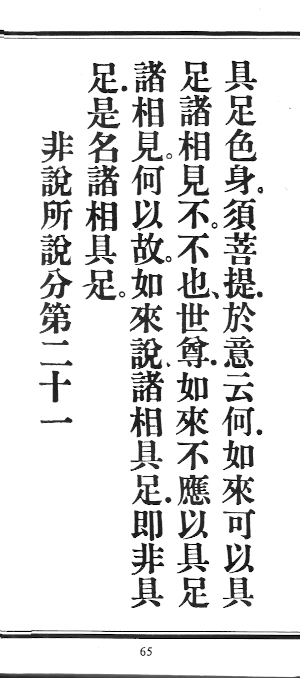 具足色身。須菩提.於意云何.如來可以具
足諸相見不。不也、世尊.如來不應以具足
諸相見。何以故。如來說、諸相具足.即非具
足.是名諸相具足。
非說所說分第二十一
65